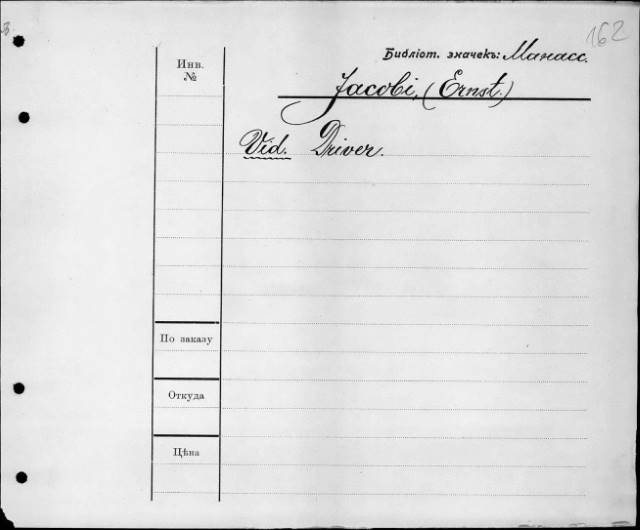 162
Библіот. значекъ: Манасс.
Инв.
№
Jacobi, (Ernst.)
Vid. Driver.
По заказу
Откуда
Цѣна